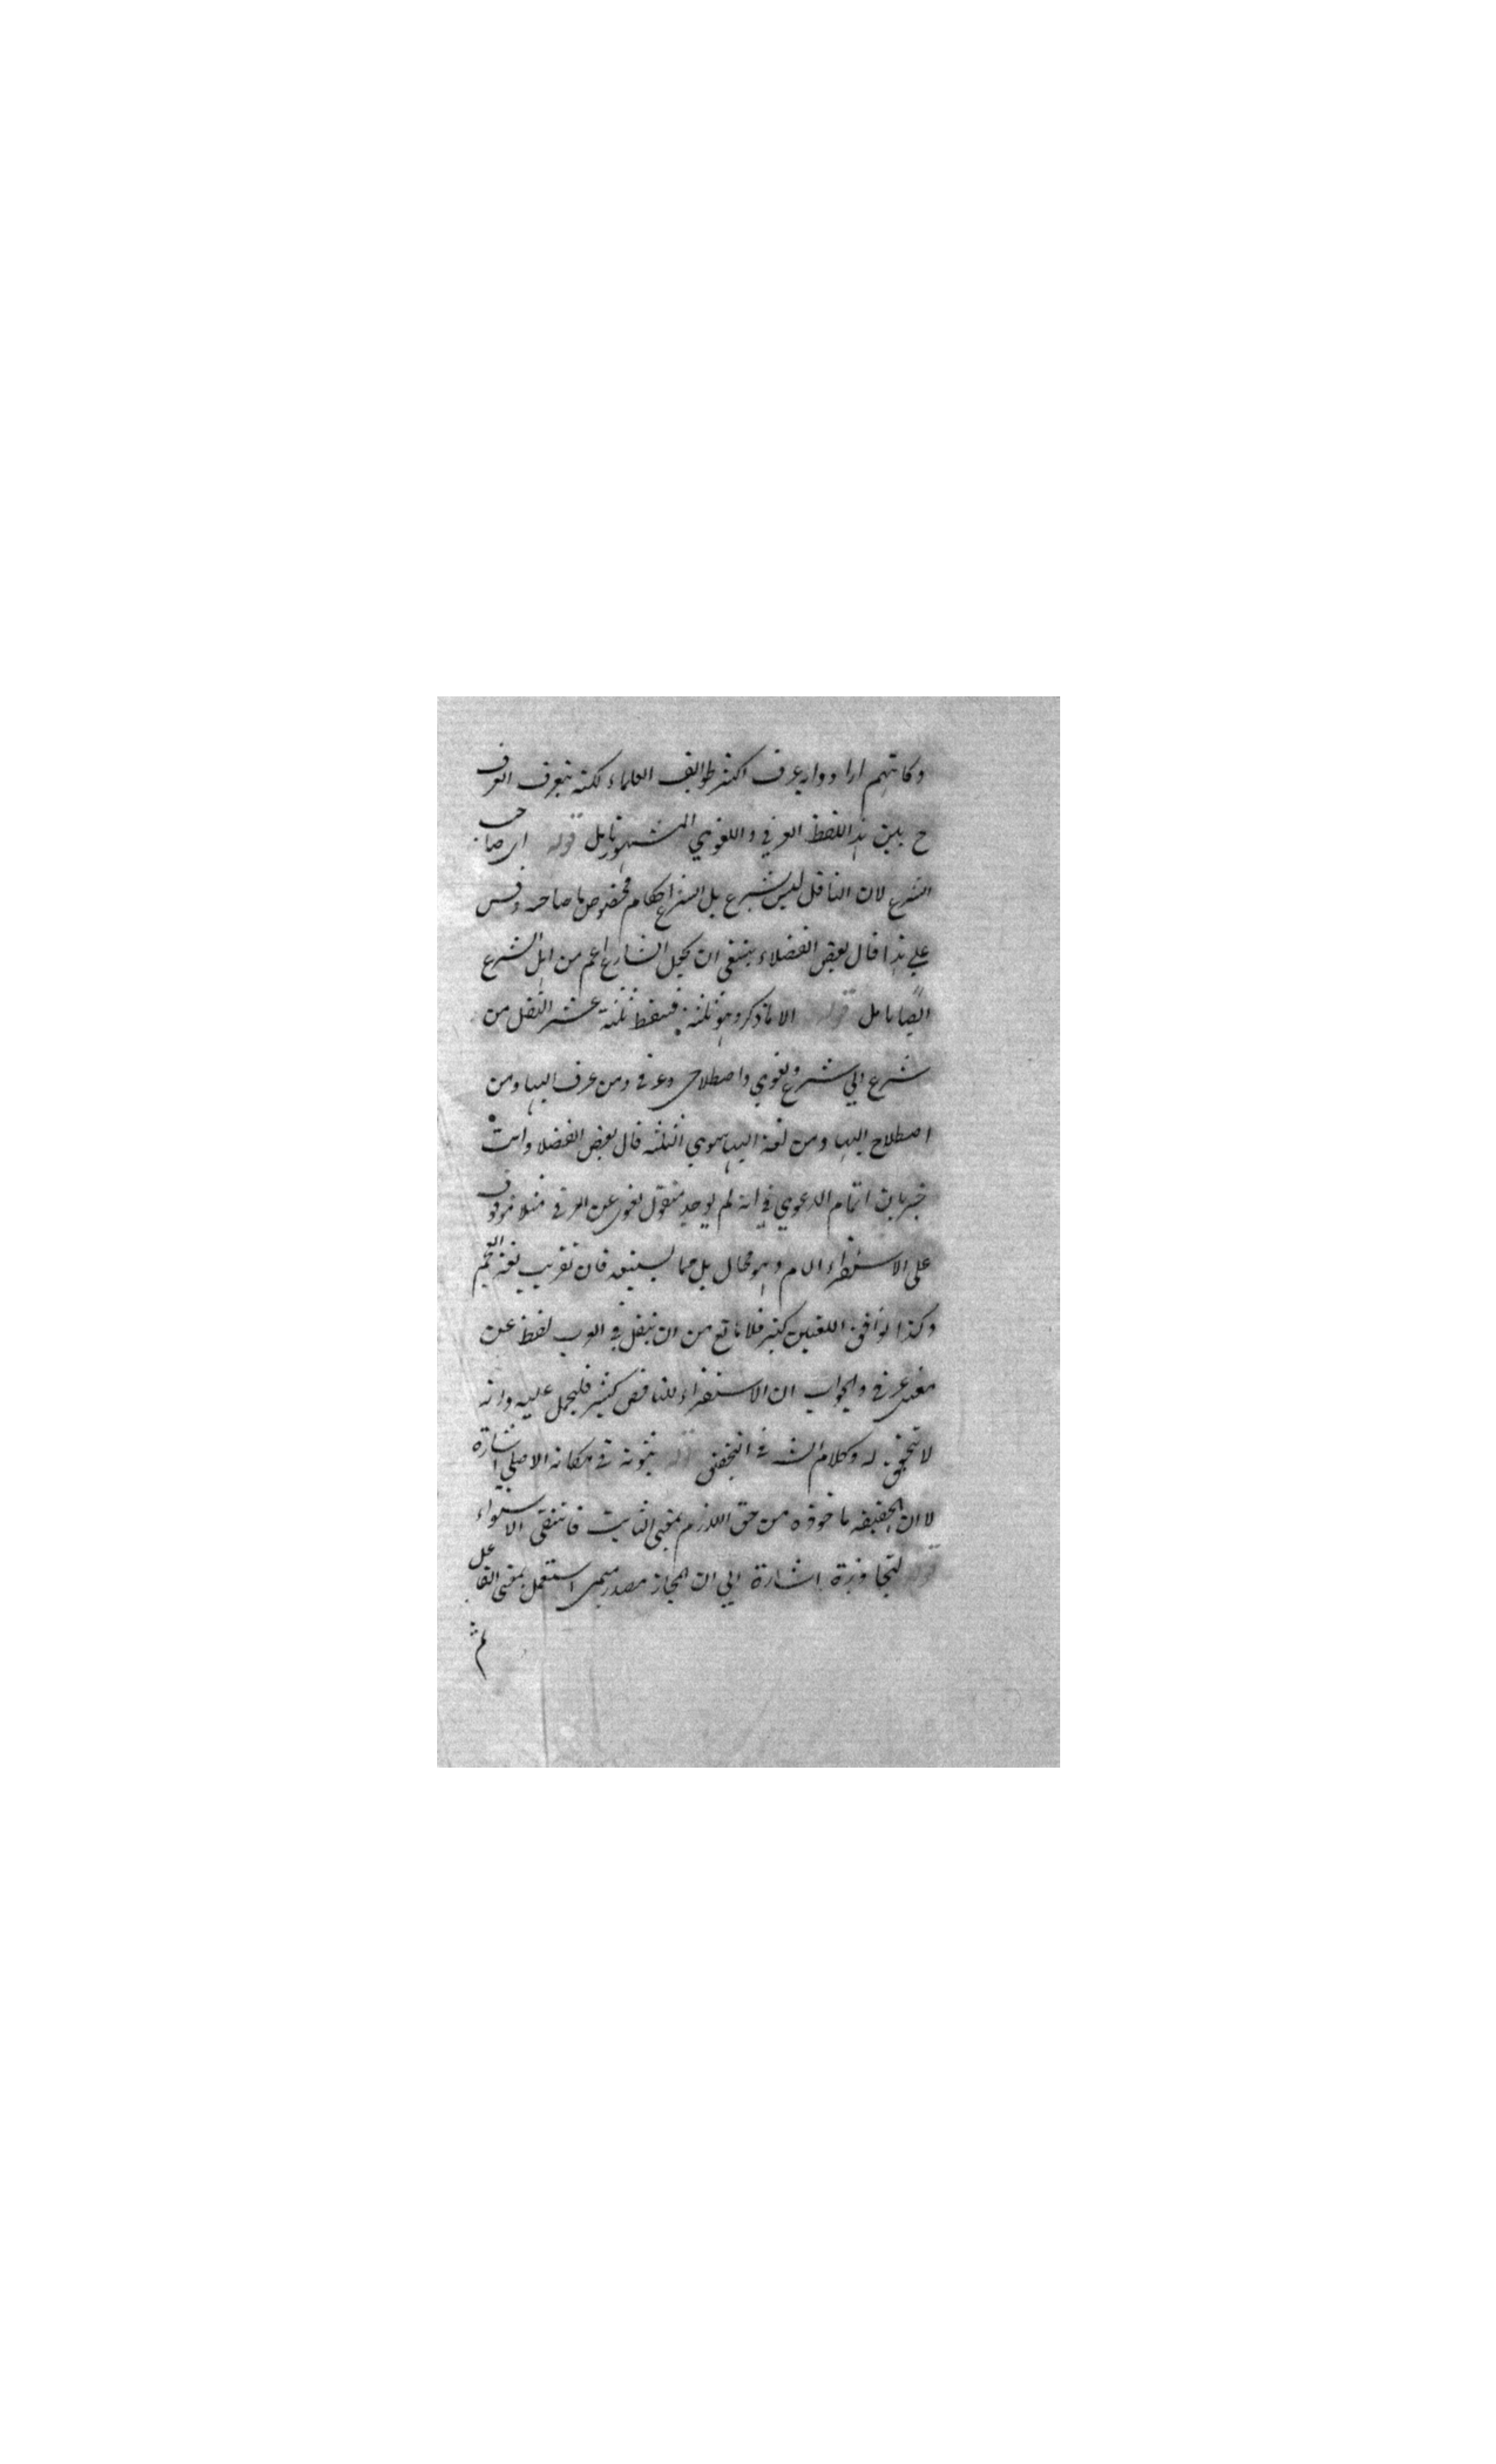 وكانهم ارادوا به عرف اكثر طوايف العلماء لكنه بعرف العرف
ح بين هذا اللفظ العرفي واللغوي المشهور تأمل قوله اى صاحب
الشرع لان الناقل ليس بشرع بل الشرع احكام مخصوص بها صاحبه وقس
علي هذا قال بعض الفضلاء ينبغي ان يجعل الشارع اعم من اهل الشرع
ايضا تامل قوله الا ما ذكر وهو ثلثة فسقط ثلثة عشر النقل من
شرع الي شرع ولغوي واصطلاحي وعرفي ومن عرف اليها ومن
اصطلاح اليها ومن لغة اليها سوي الثلثة قال بعض الفضلا وانت
خبير بان اتمام الدعوي في انه لم يوجد منقول لغوي عن العرفي مثلا موقوف
على الاستقراء التام وهو محال بل مما يستبعد فان تقريب لغة العجم
وكذا توافق اللغتين كثير فلا مانع من ان ينقل في العرب لفظ عن
معنى عرفي والجواب ان الاستقراء الناقص كثير فليحمل عليه وانه
لا تحقق له وكلام الشـ في التحقق قوله مثبوتة في مكانه الاصلي اشارة
لا ان الحقيقة ماخوذه من حق اللازم بمعنى الثابت فانتفى الاستواء
قوله لتجاوزه اشارة الي ان المجاز مصدر ميمى استعمل بمعنى الفاعل
ثم